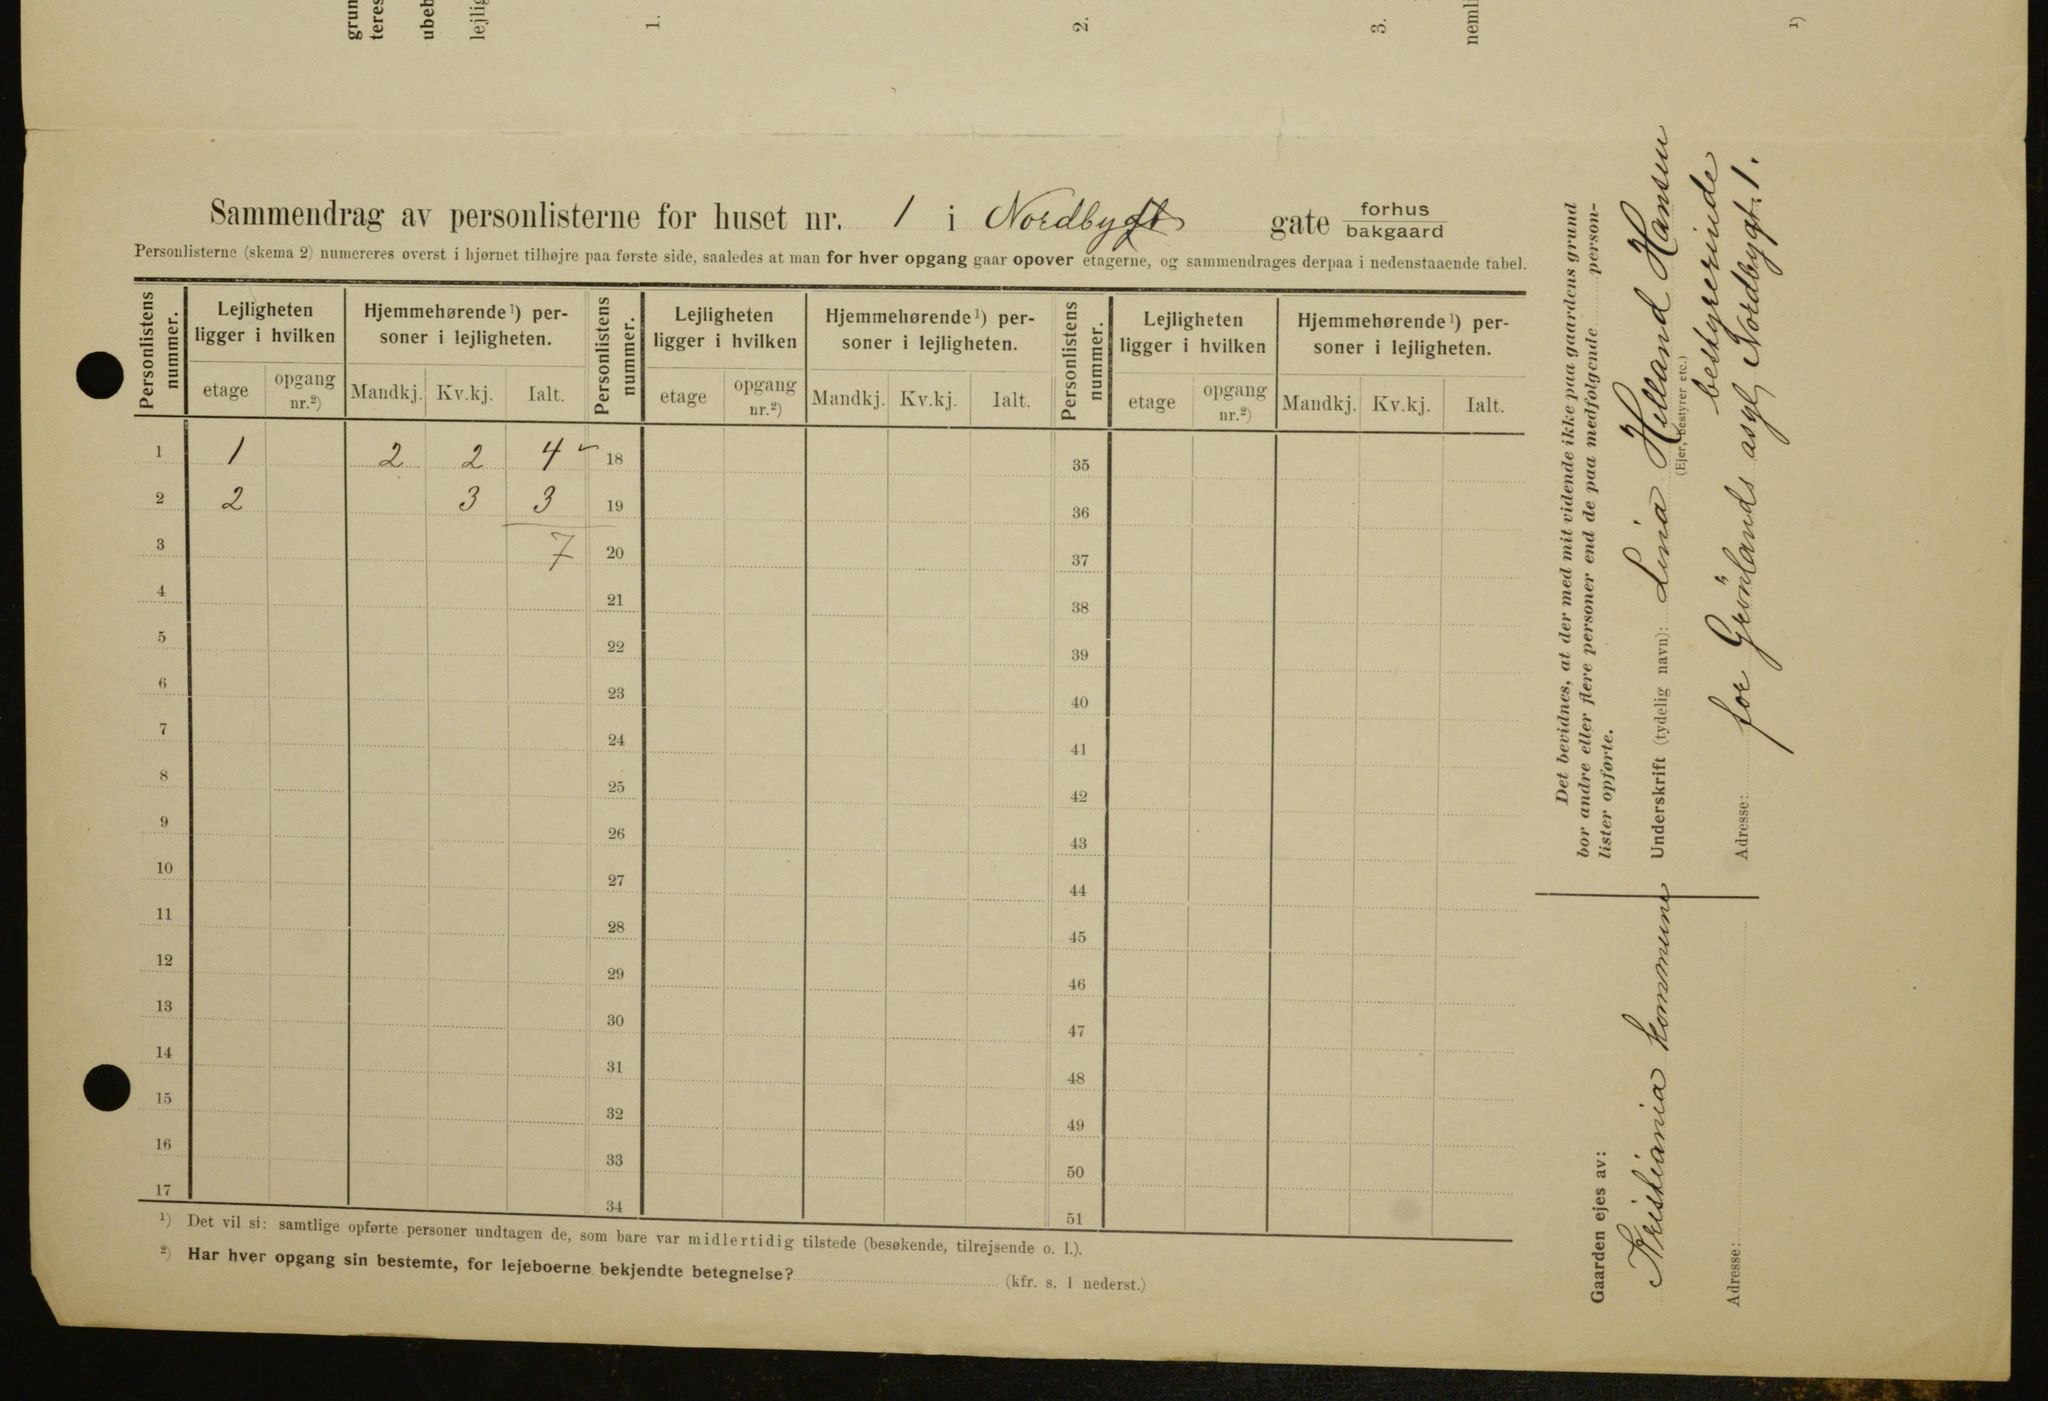 grun
teres
ubeb
lejlig
1.
2.
3.
nemli
1)
Sammendrag av personlisterne for huset nr. 1 i Nordbygt gate forhus bakgaard
Personlisterne (skema 2) numereres øverst i hjørnet tilhøjre paa første side, saaledes at man for hver opgang gaar opover etagerne, og sammendrages derpaa i nedenstaaende tabel.
Personlistens nummer. Lejligheten ligger i hvilken Hjemmehørende 1) personer i lejligheten. Personlistens nummer. Lejligheten ligger i hvilken Hjemmehørende 1) personer i lejligheten. Personlistens nummer. Lejligheten ligger i hvilken Hjemmehørende 1) personer i lejligheten.
etage opgang nr.2) Mandkj. Kv.kj. Ialt. etage opgang nr.2) Mandkj. Kv.kj. Ialt. etage opgang nr.2) Mandkj. Kv.kj. Ialt.
1 1 2 2 4 18 35
2 2 3 3 19 36
3 7 20 37
4 21 38
5 22 39
6 23 40
7 24 41
8 25 42
9 26 43
10 27 44
11 28 45
12 29 46
13 30 47
14 31 48
15 32 49
16 33 50
17 34 51
1) Det vil si: samtlige opførte personer undtagen de, som bare var midlertidig tilstede (besøkende, tilrejsende o. l.).
2) Har hver opgang sin bestemte, for lejeboerne bekjendte betegnelse? (kfr. s. 1 nederst.)
Det bevidnes, at der med mit vidende ikke paa gaardens grund
bor andre eller flere personer end de paa medfølgende person-
lister opførte.
Underskrift (tydelig navn): Lina Helland Hansen
(Ejer, bestyrer etc.)
bestyrerinde
Adresse: for Grönlands asyl, Nordbygt. 1.
Gaarden ejes av:
Kristiania kommune
Adresse: